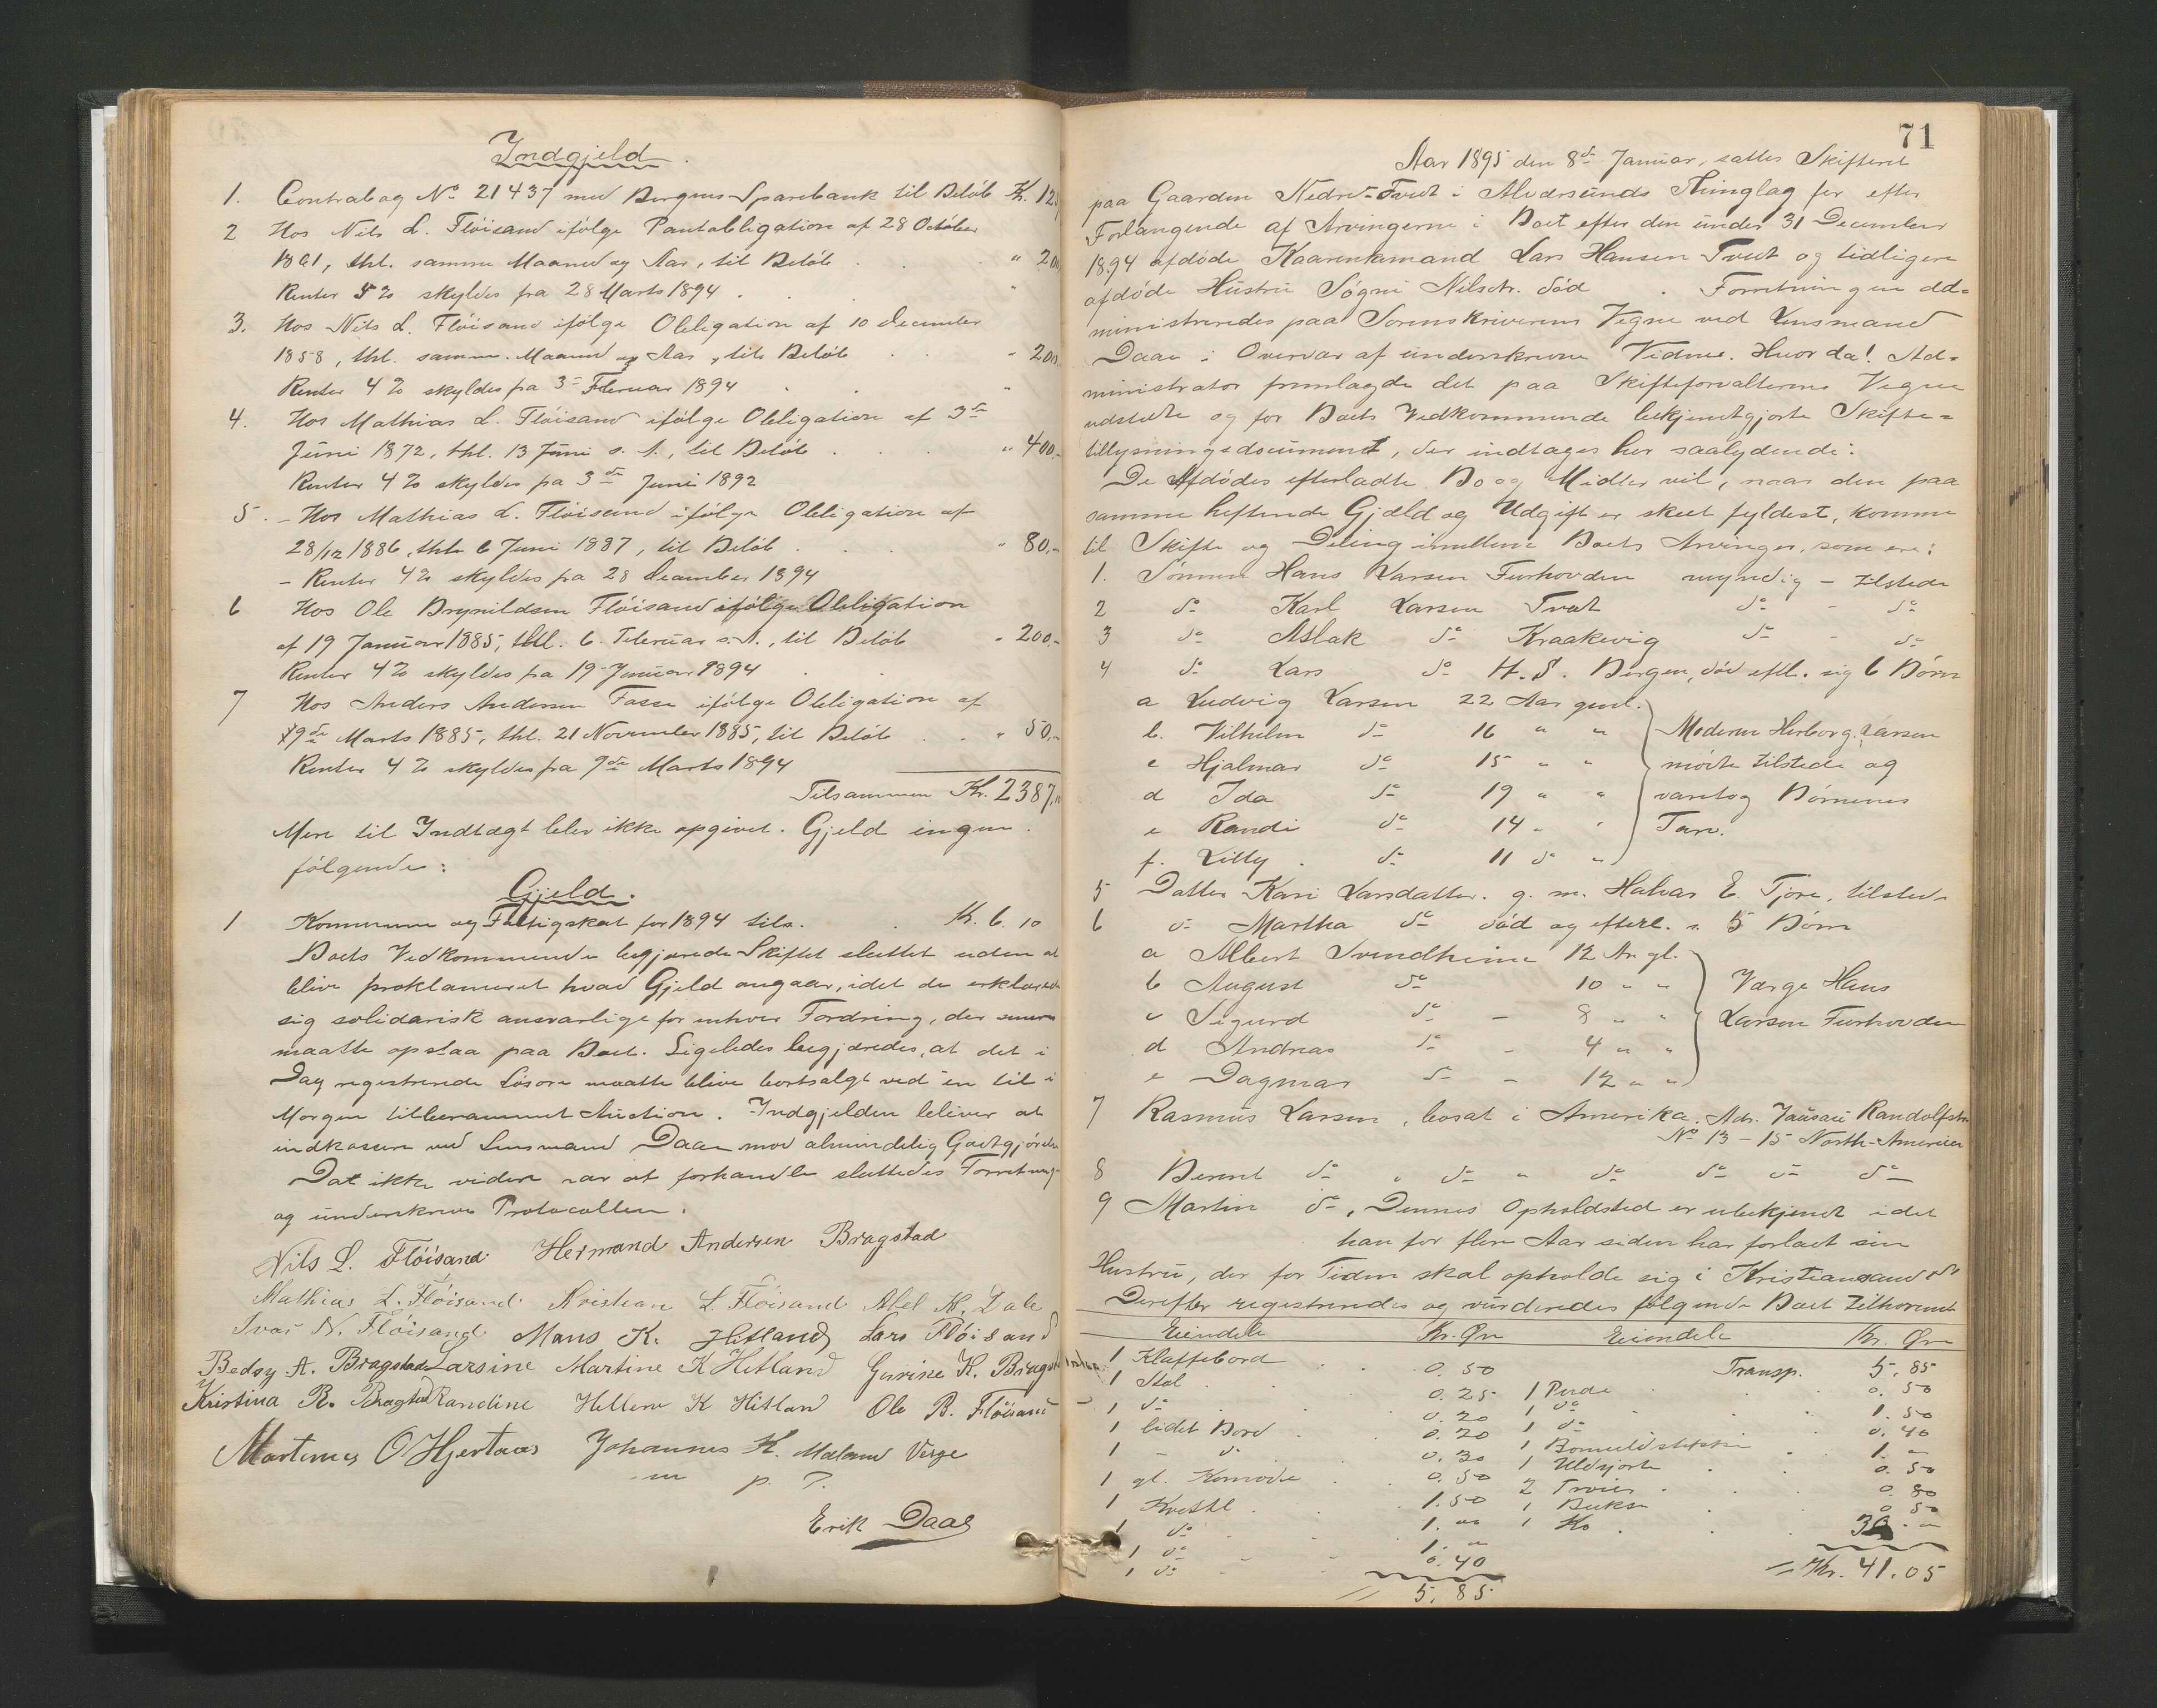 Indgjeld.
1. Contrabog No 21437 med Bergens Sparebank til Beløb Kr. 12
2 Hos Nils L. Fløisand ifølge Pantobligation af 28 October
1861, thl. samme Maaned og Aar, til Beløb " 200
Renter 4 % skyldes fra 28 Marts 1894.
3. Hos Nils L. Fløisand ifølge Obligation af 10 December
1858, thl. samme Maaned og Aar, til Beløb " 200
Renter 4 % skyldes fra 3 Februar 1894
4. Hos Mathias L. Fløisand ifølge Obligation af 3de
Juni 1872, thl. 13 Juni s. A., til Beløb " 400.-
Renter 4 % skyldes fra 3de Juni 1892
5. - Hos Mathias L. Fløisand ifølge Obligation af
28/12 1886, thl. 6 Juni 1887, til Beløb " 80.-
- Renter 4 % skyldes fra 28 December 1894
6 Hos Ole Brynildsen Fløisand ifølge Obligation
af 19 Januar 1885, thl. 6. Februar s. A., til Beløb " 200.-
Renter 4 % skyldes fra 19 Januar 1894
7 Hos Anders Andersen Fosse ifølge Obligation af
9de Marts 1885, thl. 21 November 1885, til Beløb " 50.-
Renter 4 % skyldes fra 9de Marts 1894
Tilsammen Kr. 2387,
Mere til Indtægt blev ikke opgivet. Gjeld ingen.
følgende:
Gjeld.
1 Kommune og Fattigskat for 1894 tils. Kr. 6. 10
Boets Vedkommende begjærede Skiftet sluttet uden at
blive proklameret hvad Gjeld angaar, idet de erklærede
sig solidarisk ansvarlige for enhver Fordring, der senere
maatte opstaa paa Boet. Ligeledes begjæredes, at det i
Dag registrerede Løsøre maatte blive bortsolgt ved en til i
Morgen tilberammet Auction. Indgjelden bliver at
indkassere ved Lensmand Daae mod almindelig Godtgjørelse
Da ikke videre var at forhandle sluttedes Forretningen
og underskrives Protocollen.
Nils L. Fløisand Hermand Andersen Bragstad
Mathias L. Fløisand Kristian L. Fløisand Abel K. Dale
Ivar N. Fløisand Mons K. Hitland Lars Fløisand
Bedsy A. Bragstad Larsine Martine K Hetland Gurine K. Bragstad
Kristina R. Bragstad Randine Hellene K Hitland Ole B. Fløisand
Martines O Hjertaas Johannes K. Maland Verge
m p. P.
Erik Daae
71
Aar 1895 den 8de Januar, sattes Skifteret
paa Gaarden Nedre-Tveit i Alversunds Thinglag for efter
Forlangende af Arvingerne i Boet efter den under 31 December
1894 afdøde Kaarenkmand Lars Hansen Tveit og tidligere
afdøde Hustru Søgni Nilsdtr. død. Forretningen ad=
ministreredes paa Sorenskriverens Vegne ved Lensmand
Daae i Overvær af underskrevne Vidner. Hvor da! Ad=
ministrator fremlagde det paa Skifteforvalterens Vegne
udstedte og for Boets Vedkommende bekjendtgjorte Skifte=
tillysningsdocument, der indtages her saalydende:
De Afdødes efterladte Bo og Midler vil, naar den paa
samme heftende Gjæld og Udgift er skeet fyldest, komme
til Skifte og Deling imellem Boets Arvinger, som ere:
1. Sønnen Hans Larsen Furhovden myndig - tilstede
2 do Karl Larsen Tveit do - do
3 do Aslak do Kraakevig do - do
4 do Lars do Bergen, død eftl. sig 6 Børn
a Ludvig Larsen 22 Aar gml.
b. Vilhelm do 16 " " Moderen Herborg Larsen
c Hjalmar do 15 " " mødte tilstede og
d Ida do 19 " " varetog Børnenes
e Randi do 14 " " Tarv.
f. Lilly do 11 do "
5 Datter Kari Larsdatter. g. m. Halvar E. Tjore, tilstede
6 do Martha do død og efterl. s. 5 Børn
a Albert Svendheim 12 Ar gl.
b August do 10 " " Værge Hans
c Sigurd do - 8 " " Larsen Furhovden
d Andreas do - 4 " "
e Dagmar do - 12 " "
7 Rasmus Larsen, bosat i Amerika, Adr. Randolfstr
No 13-15 North-America
8 Berent do " do " do do do do
9 Martin do, Dennes Opholdsted er ubekjendt idet
han for flere Aar siden har forladt sin
Hustru, der for Tiden skal opholde sig i Kristiansand
Derefter registreredes og vurderedes følgende Boet tilhørende
Eiendele Kr. Øre Eiendele Kr. Øre
1 Klaffebord 0. 50 Transp. 5. 85
1 Stol 0. 25 1 Pude 0. 50
1 do 0. 20 1 do 1. 50
1 lidet Bord 0. 20 1 do 0. 40
1 - do 0. 30 1 Bomuldsteppe 1. "
1 gl. Komode 0. 50 1 Uldsjorte 0. 50
1 Kvittel 1. 50 2 Trøier 0. 80
1 do 1. " 1 Bukse 0. 50
1 do 1. " 1 Ko 30. "
1 do 0. 40
= 5. 85 = Kr. 41.05